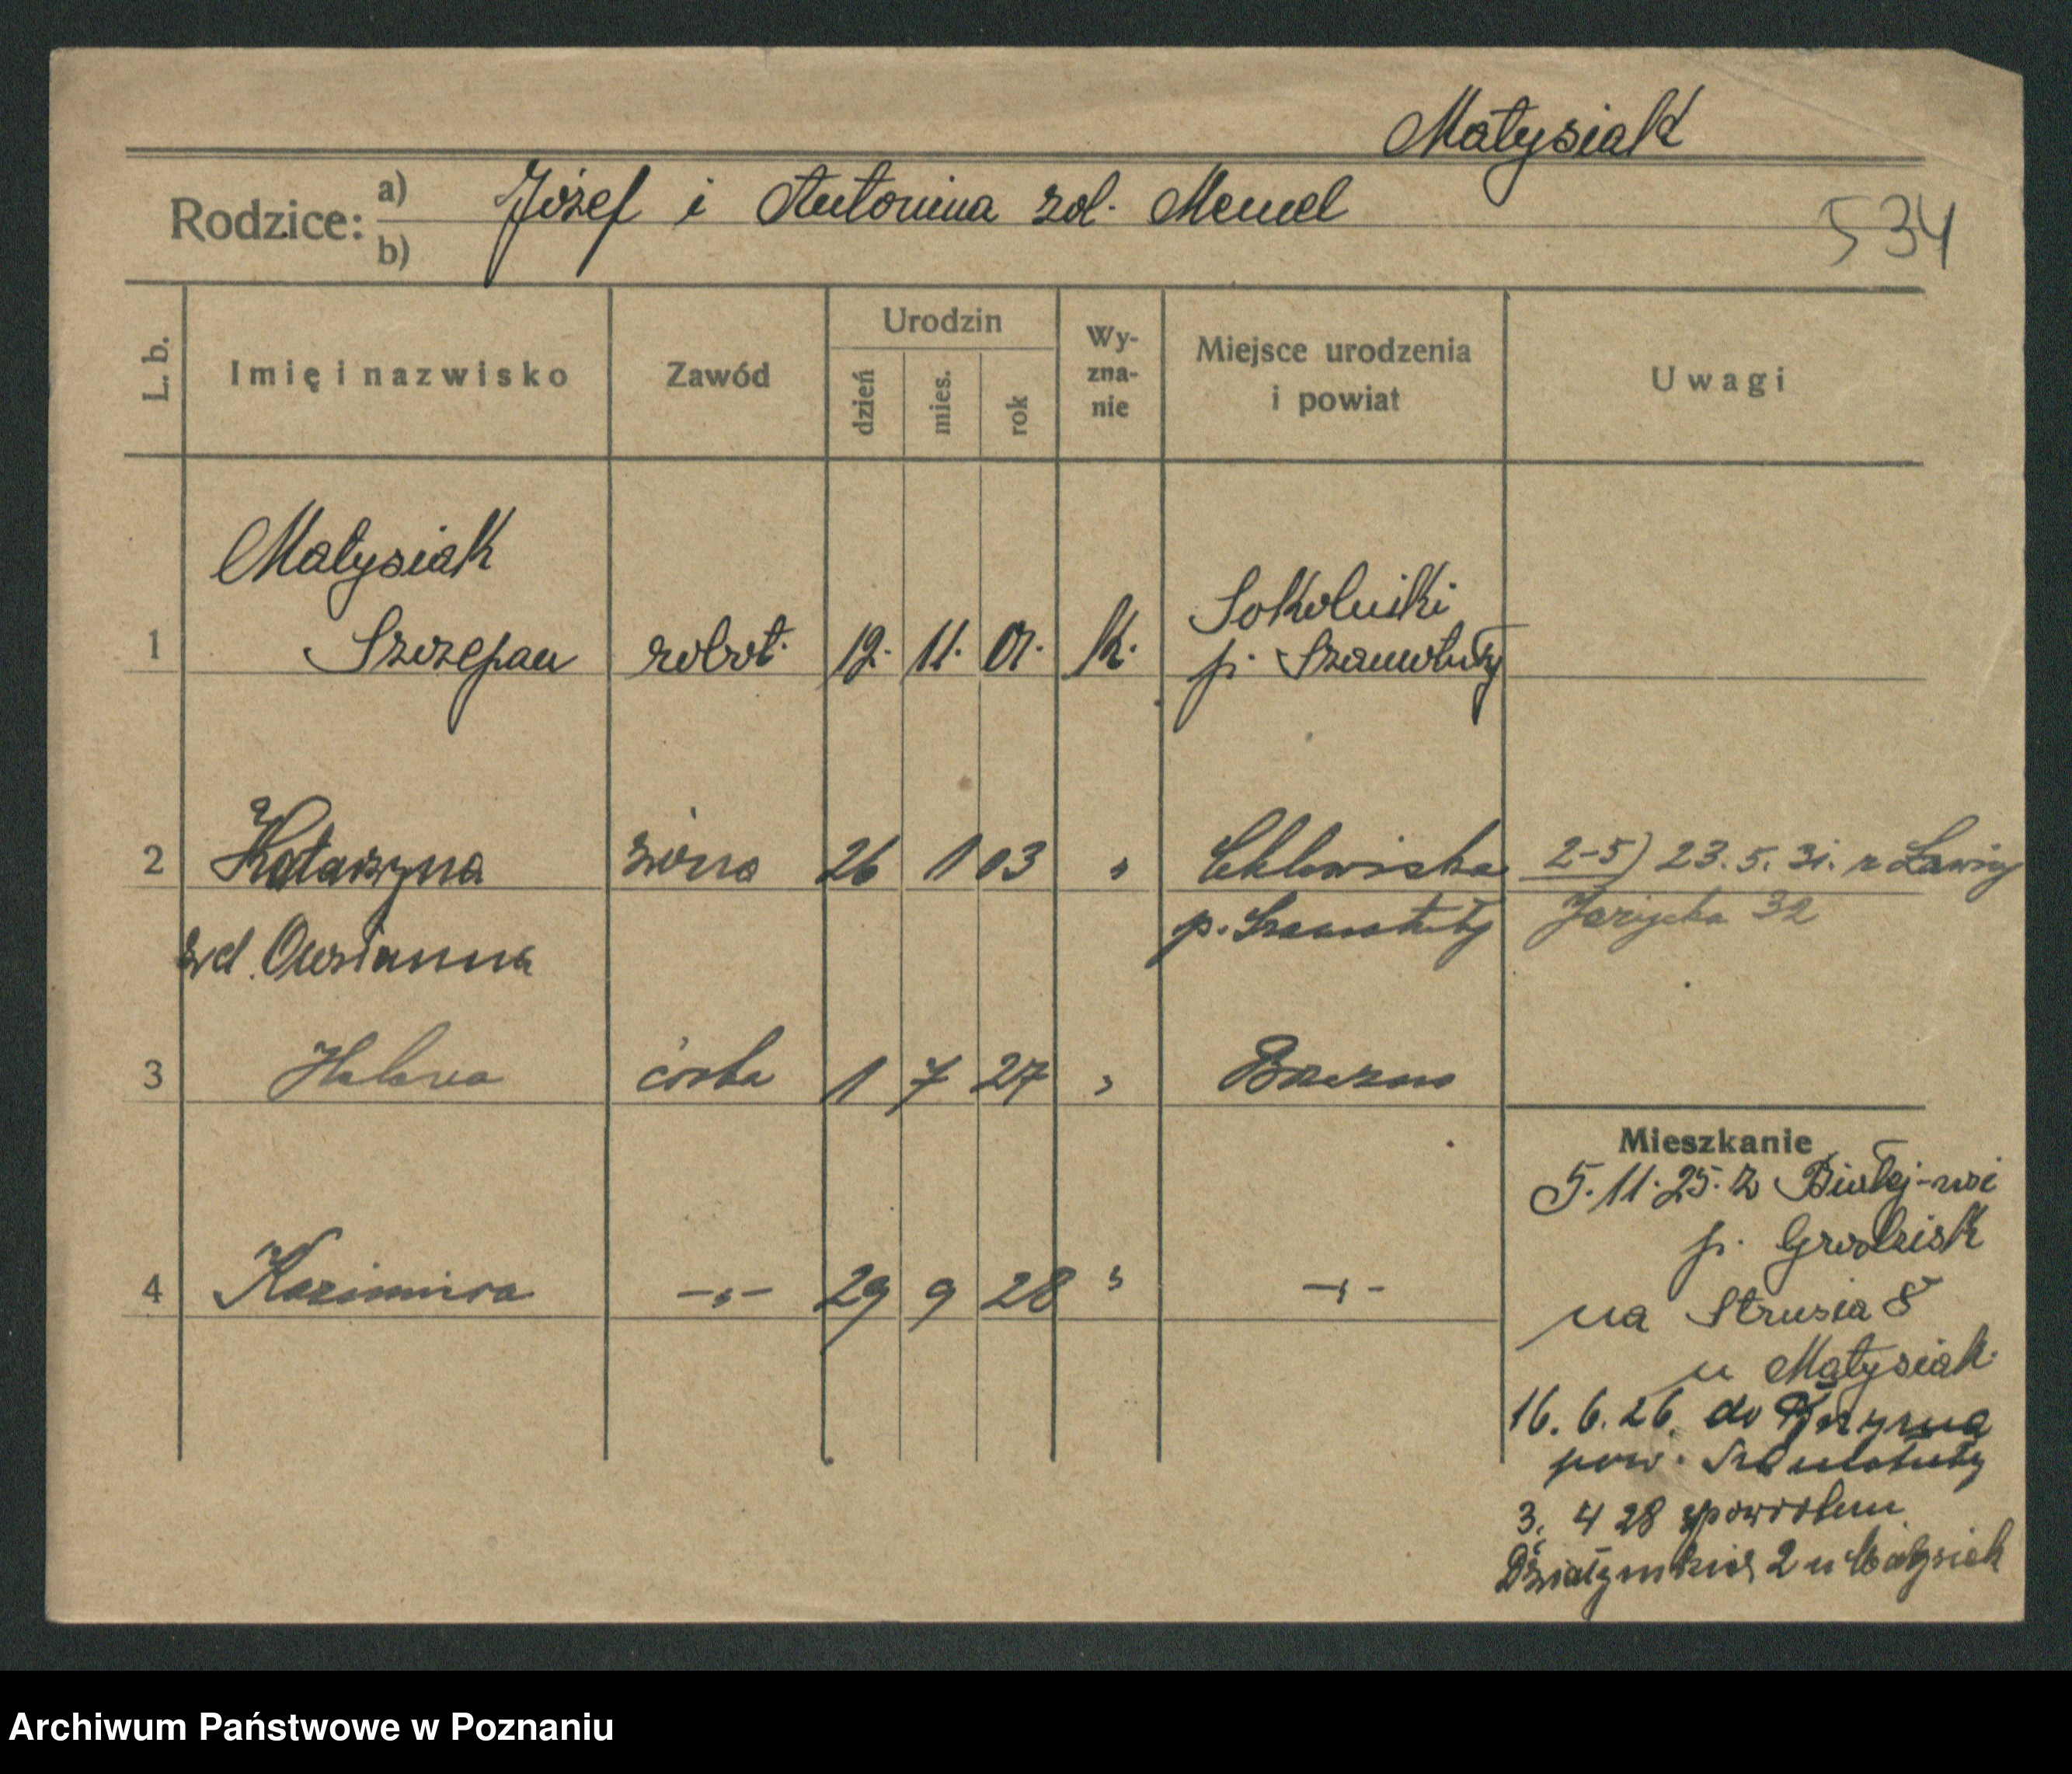 Matysiak
Rodzice: a) Józef i Antonina zd. Memel
b)
534
L. b.
Imię i nazwisko
Zawód
Urodzin
dzień
mies.
rok
Wy-
zna-
nie
Miejsce urodzenia
i powiat
Uwagi
Matysiak
1 Szczepan robot. 12. 11. 01. k. Sokolniki
p. Szamotuły
2 Katarzyna żona 26 1 03 " 2-5) 23. 5. 31. z Ławicy
zd. p. Szamotuły 32
3 Helena córka 1 7 27 " Brzezno
4 Kazimiera -"- 29 9 28 " -"-
Mieszkanie
5. 11. 25. z Białej-wsi
p. Grodzisk
na Strusia 8
u Matysiak
16. 6. 26. do
pow. Szamotuły
3. 4 28 spowrotem
Działyńskich 2 u Matysiak
Archiwum Państwowe w Poznaniu